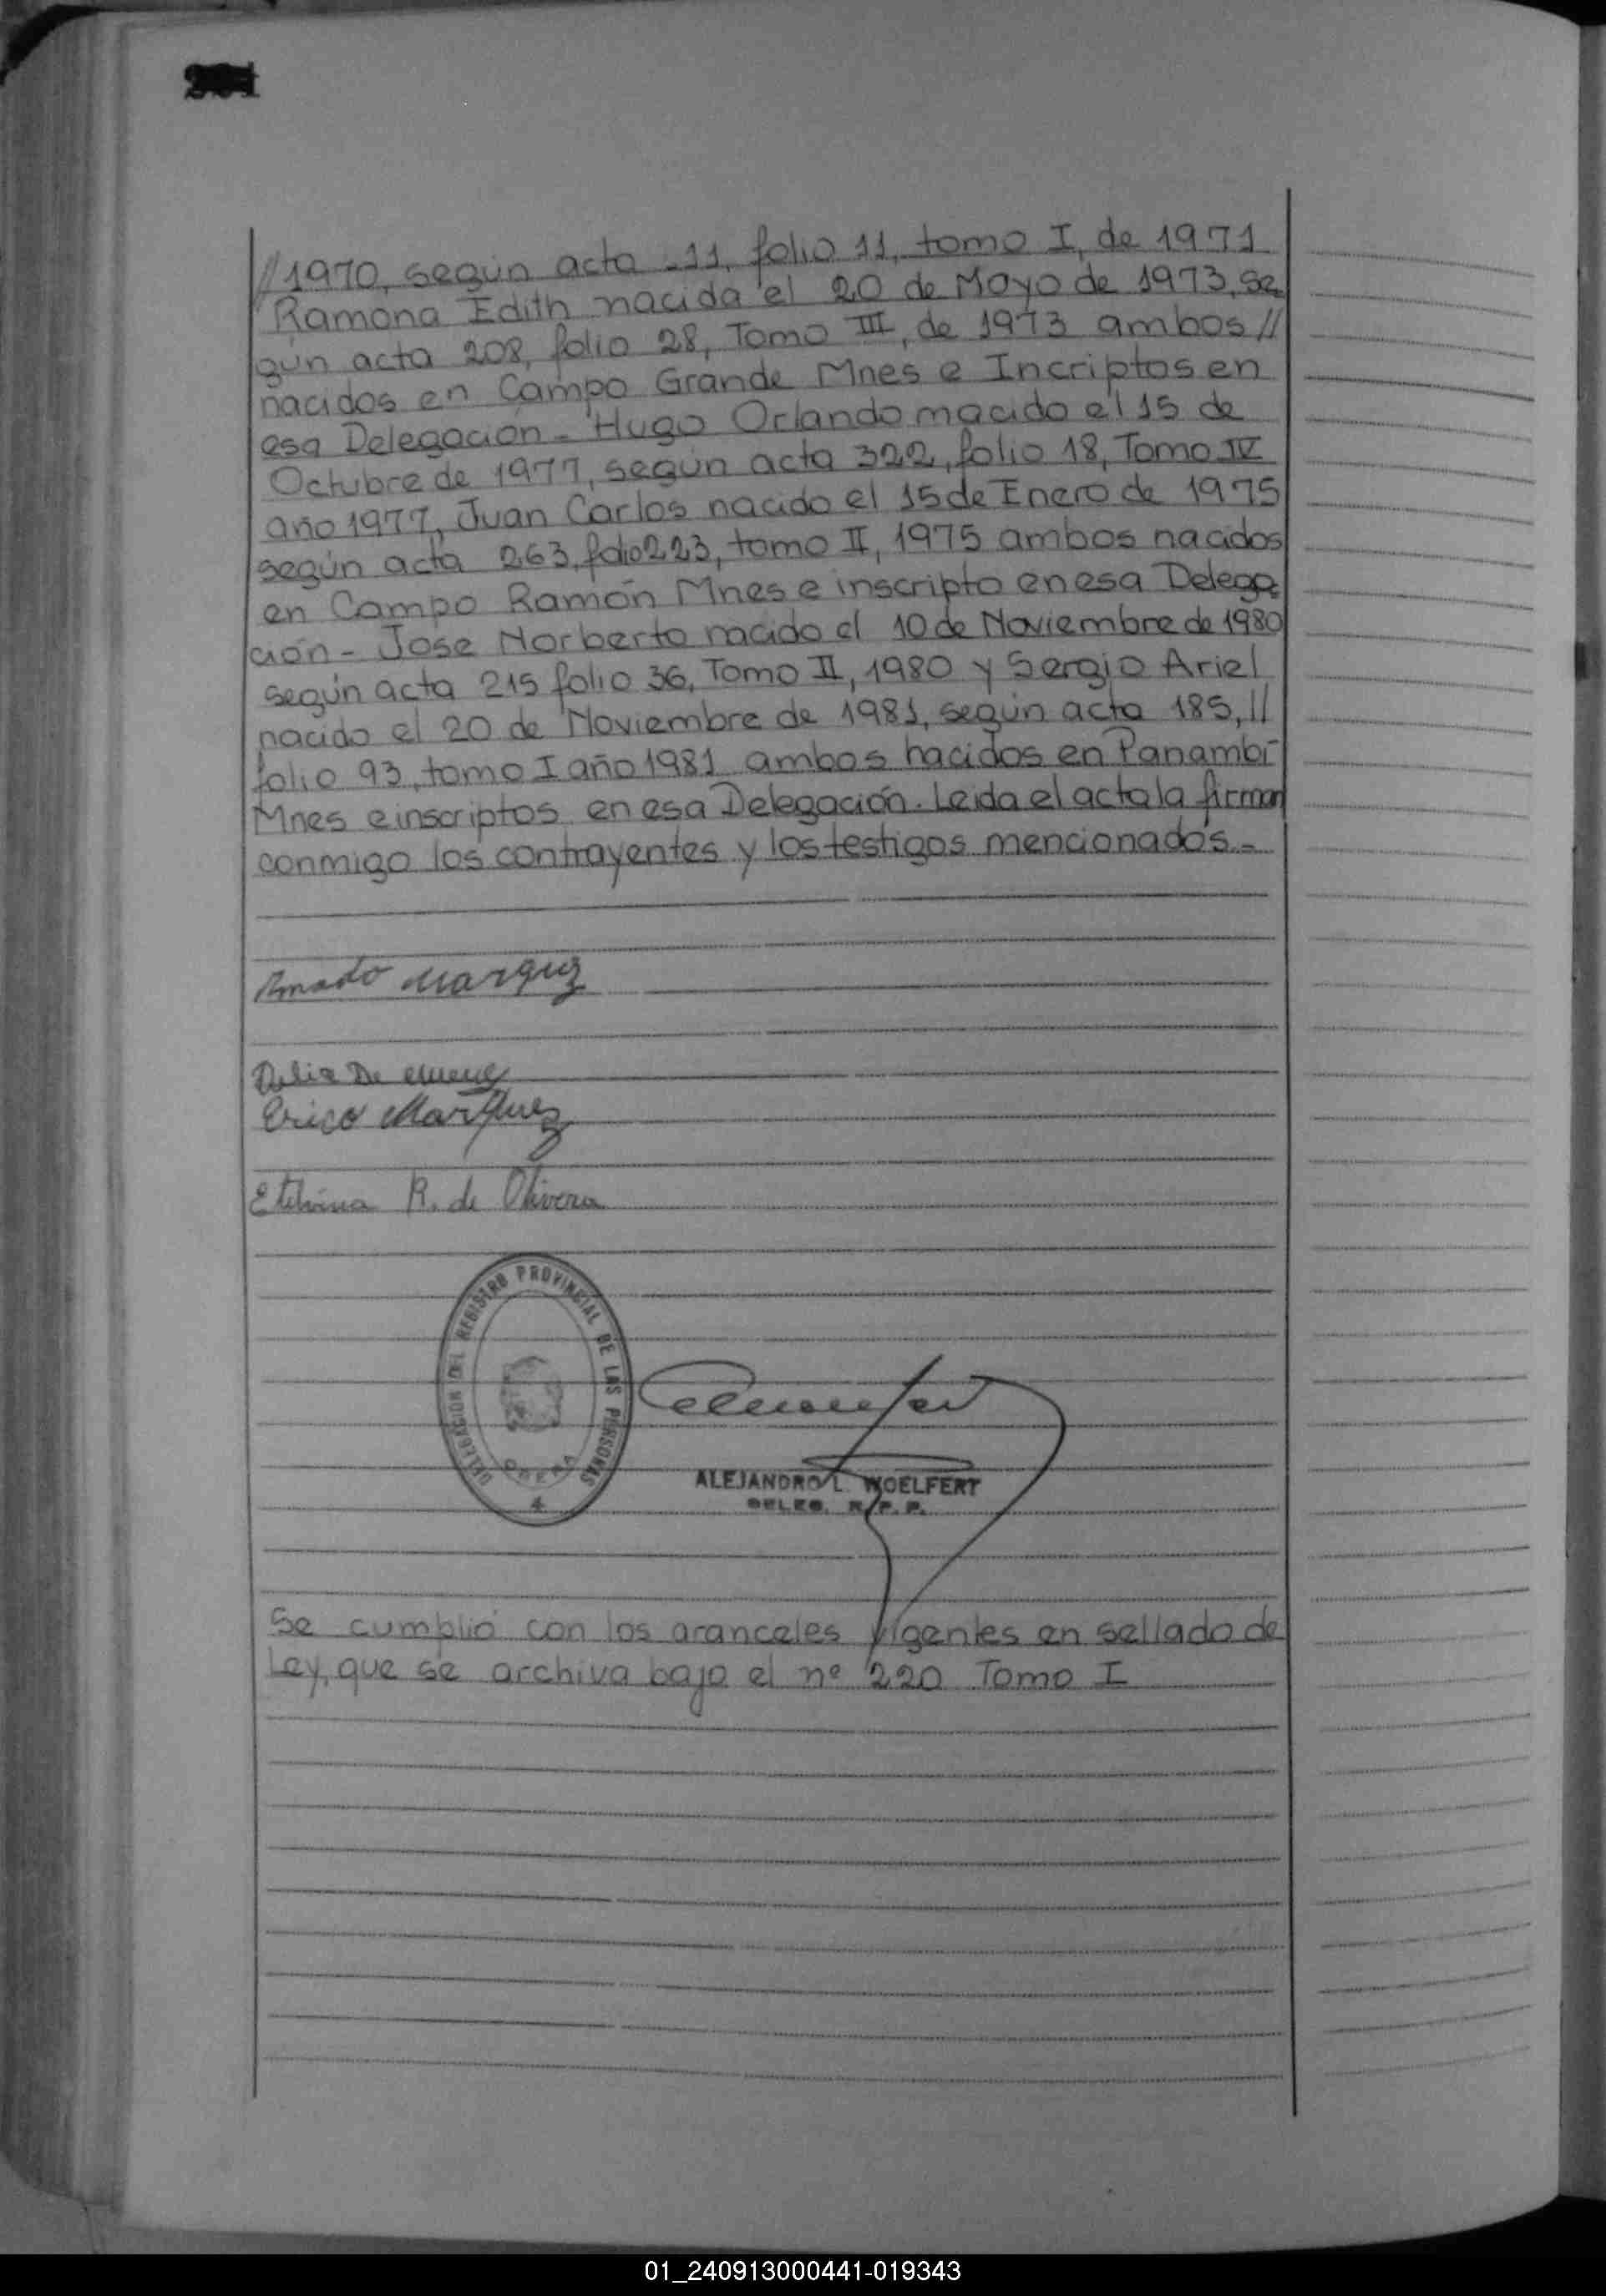 //1970, según acta -11, folio 11, tomo I, de 1971
Ramona Edith nacida el 20 de Mayo de 1973, se
gún acta 208, folio 28, Tomo III, de 1973 ambos //
nacidos en Campo Grande Mnes e Incriptos en
esa Delegación - Hugo Orlando nacido el 15 de
Octubre de 1977, según acta 322, folio 18, Tomo IV
año 1977, Juan Carlos nacido el 15 de Enero de 1975
según acta 263, folio 223, tomo II, 1975 ambos nacidos
en Campo Ramón Mnes e inscripto en esa Delega
ción - Jose Norberto nacido el 10 de Noviembre de 1980
según acta 215 folio 36, Tomo II, 1980 y Sergio Ariel
nacido el 20 de Noviembre de 1981, según acta 185, //
folio 93, tomo I año 1981 ambos nacidos en Panambí
Mnes e inscriptos en esa Delegación. Leida el acta la firman
conmigo los contrayentes y los testigos mencionados.-
Amado Marquz
Delia De
Erico Marquez
Etelvina R. de Olivera
DELEGACION DEL REGISTRO PROVINCIAL DE LAS PERSONAS
OBERA
4
ALEJANDRO L. WOELFERT
DELEG. R.P.P.
Se cumblió con los aranceles vigentes en sellado de
Ley, que se archiva bajo el nº 220 Tomo I
01_240913000441-019343